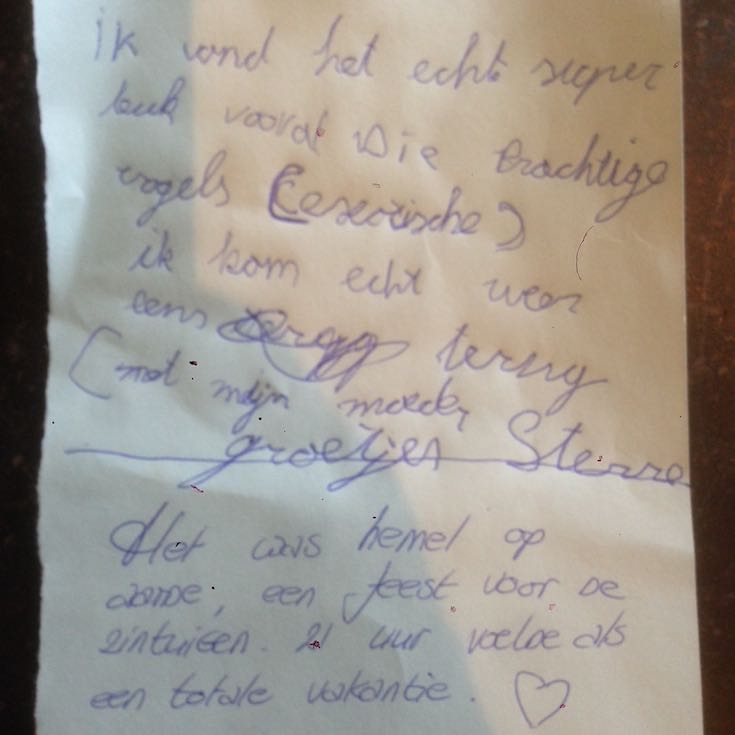 ik vond het echt super
leuk vooral Die prachtige
vogels (exotische)
ik kom echt weer
eens terug
(met mijn moeder
groetjes Sterre
Het was hemel op
aarde, een feest voor de
zintuigen. 21 uur voelde als
een totale vakantie. ♡